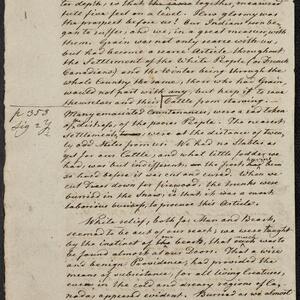 ter depth; so that the same together, measured
full five feet on a level. How gloomy was
the prospect before us! Our Indians now be-
gan to suffer; and we, in a great measure with
them. Grain was not only scarce with us,
but had become a scarce Article throughout
the Settlement of the White People (or French
Canadians) and the Winter being through the
whole Country the same, those who had Grain,
would not part with any, but keep it to save
themselves and their Cattle from starving.
Many emaciated Countenances, were a sad token
of the distress, of the poorer People. The nearest
settlements, were at the distance of twen-
ty and Miles from us. We had no stables as
yet for our Cattle; and what little fodder, we
had, was but insufficient; as the frost
so hard before it was cut and cured. When we
cut Trees down for firewood, the trunks were
buried in the snow; so that it was a most
laborious business to procure this Article.
While relief, both for Man and Beast,
seemed to be out of our reach; we were taught
by the instinct of the beasts, that such was
to be found almost at our Doors. That a wise
and benign Providence, had provided the
means of subsistence, for all living creatures,
even in the cold and dreary regions of Ca-
nada, appeared evident. Buried as we almost
p 353
Sig 2 Y